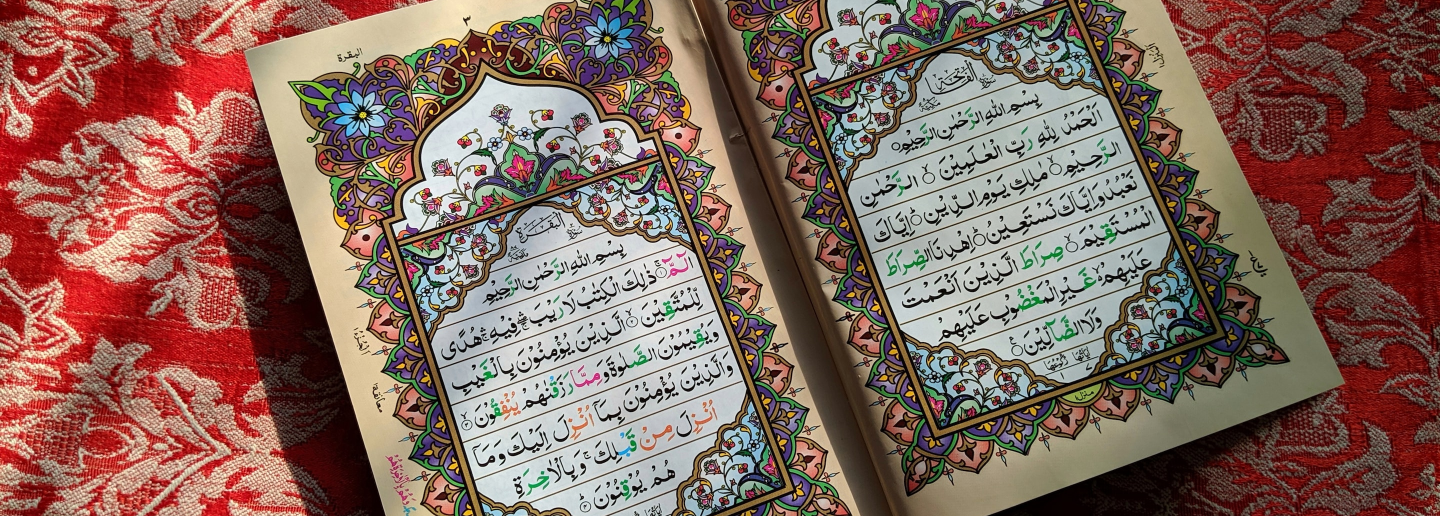 الفاتحة
بِسْمِ اللهِ الرَّحْمٰنِ الرَّحِيْمِ
اَلْحَمْدُ لِلّٰهِ رَبِّ الْعٰلَمِيْنَ ۙ الرَّحْمٰنِ
الرَّحِيْمِ ۙ مٰلِكِ يَوْمِ الدِّيْنِ ؕ اِيَّاكَ
نَعْبُدُ وَاِيَّاكَ نَسْتَعِيْنُ ؕ اِهْدِنَا الصِّرَاطَ
الْمُسْتَقِيْمَ ۙ صِرَاطَ الَّذِيْنَ اَنْعَمْتَ
عَلَيْهِمْ ۙ غَيْرِ الْمَغْضُوْبِ عَلَيْهِمْ
وَلَا الضَّآلِّيْنَ
٣
البقرة
الْبَقَرَة
بِسْمِ اللهِ الرَّحْمٰنِ الرَّحِيْمِ
الٓمّٓ ۚ ذٰلِكَ الْكِتٰبُ لَا رَيْبَ ۛ فِيْهِ ۛ هُدًى
لِّلْمُتَّقِيْنَ ۙ الَّذِيْنَ يُؤْمِنُوْنَ بِالْغَيْبِ
وَيُقِيْمُوْنَ الصَّلٰوةَ وَمِمَّا رَزَقْنٰهُمْ يُنْفِقُوْنَ ۙ
وَالَّذِيْنَ يُؤْمِنُوْنَ بِمَآ اُنْزِلَ اِلَيْكَ وَمَآ
اُنْزِلَ مِنْ قَبْلِكَ ۚ وَبِالْاٰخِرَةِ
هُمْ يُوْقِنُوْنَ